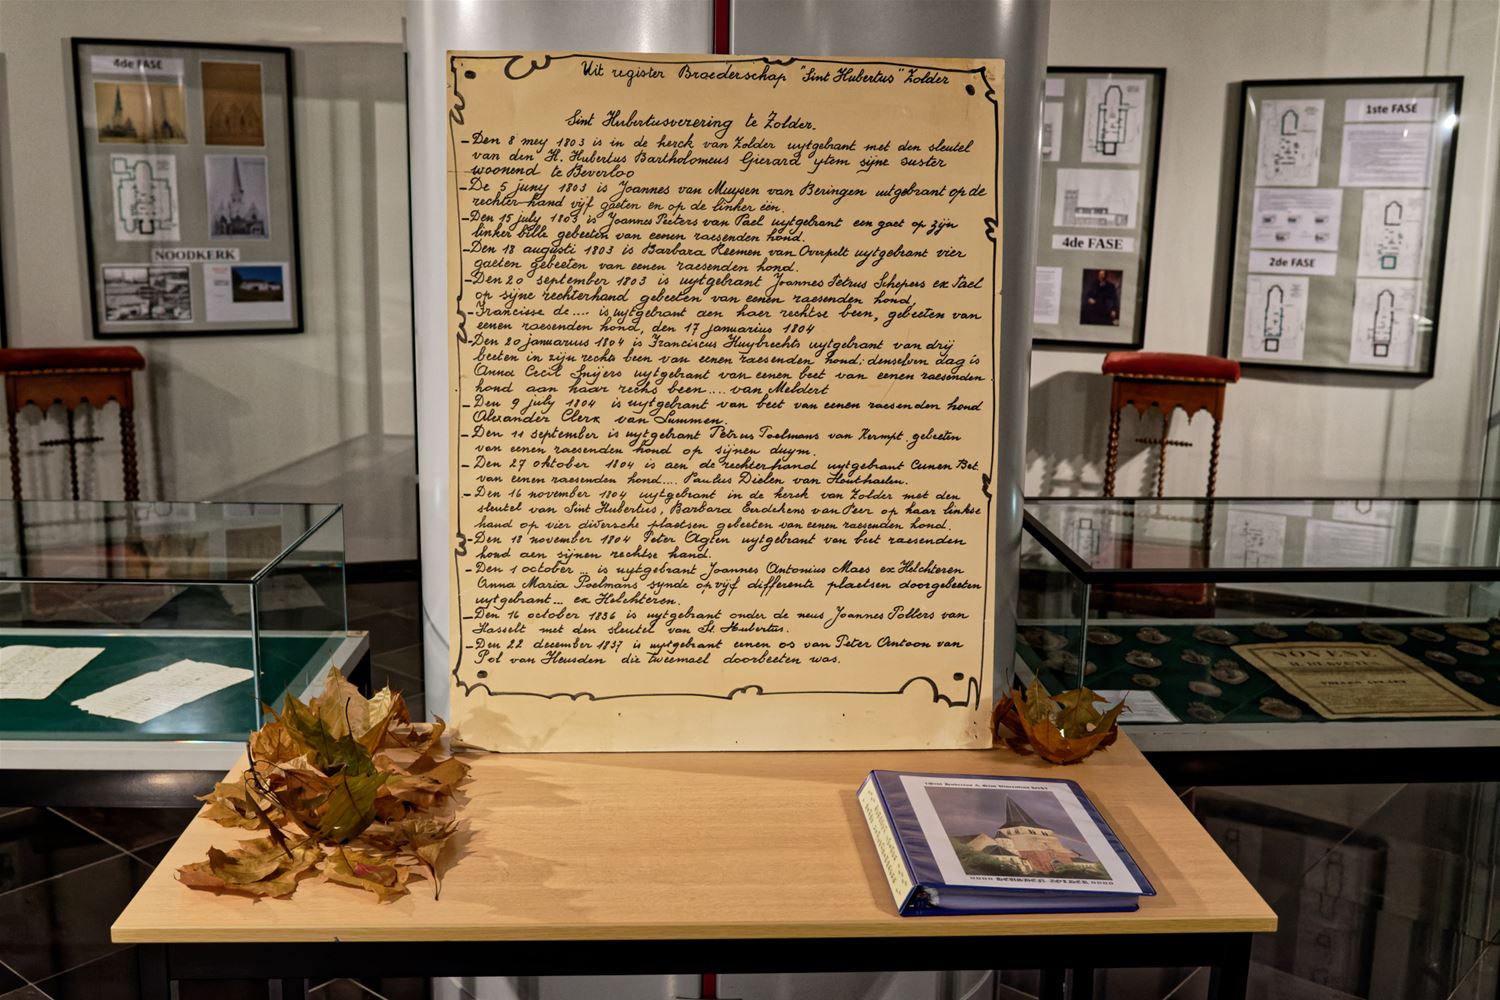 Uit register Broederschap "Sint Hubertus" Zolder
Sint Hubertusverering te Zolder.
- Den 8 mey 1803 is in de kerck van Zolder uytgebrant met den sleutel
van den H. Hubertus Bartholomeus Gierard ytem sijne suster
woonend te Beverloo
- De 5 juny 1803 is Joannes van Muysen van Beringen uitgebrant op de
rechter hand vijf gaeten en op de linker een.
- Den 15 july 1803 is Joannes Peeters van Pael uytgebrant een gaet op zijn
linker bille gebeeten van eenen raesenden hond.
- Den 18 augusti 1803 is Barbara Heemen van Overpelt uytgebrant vier
gaeten gebeeten van eenen raesenden hond.
- Den 20 september 1803 is uytgebrant Joannes Petrus Schepers ex Pael
op sijne rechterhand gebeeten van eenen raesenden hond
- Francisse de .... is uytgebrant aen haer rechtse been, gebeeten van
eenen raesenden hond, den 17 januarius 1804
- Den 20 januarius 1804 is Franciscus Huybrechts uytgebrant van drij
beeten in zijn rechts been van eenen raesenden hond: denselven dag is
Anna Cecil Snijers uytgebrant van eenen beet van eenen raesenden
hond aan haar rechs been .... van Meldert
- Den 9 july 1804 is uytgebrant van beet van eenen raesenden hond
Alexander Clerx van Lummen.
- Den 11 september is uytgebrant Petrus Poelmans van Kermpt gebeeten
van eenen raesenden hond op sijnen duym.
- Den 27 oktober 1804 is aen de rechterhand uytgebrant Eunen Bet
van eenen raesenden hond .... Paulus Dielen van Houthaelen.
- Den 16 november 1804 uytgebrant in de kerck van Zolder met den
sleutel van Sint Hubertus, Barbara Eerdekens van Peer op haar linkse
hand op vier diversche plaetsen gebeeten van eenen raesenden hond.
- Den 18 november 1804 Peter Agten uytgebrant van beet raesenden
hond aen sijnen rechtse hand.
- Den 1 october ... is uytgebrant Joannes Antonius Maes ex Helchteren
Anna Maria Poelmans synde op vijf differente plaetsen doorgebeeten
uytgebrant ... ex Helchteren.
- Den 16 october 1836 is uytgebrant onder de neus Joannes Pollers van
Hasselt met den sleutel van St. Hubertus.
- Den 22 december 1837 is uytgebrant eenen os van Peter Antoon van
Pol van Heusden die tweemael doorbeeten was.
4de FASE
NOODKERK
4de FASE
1ste FASE
2de FASE
NOVENE
HEUSDEN-ZOLDER